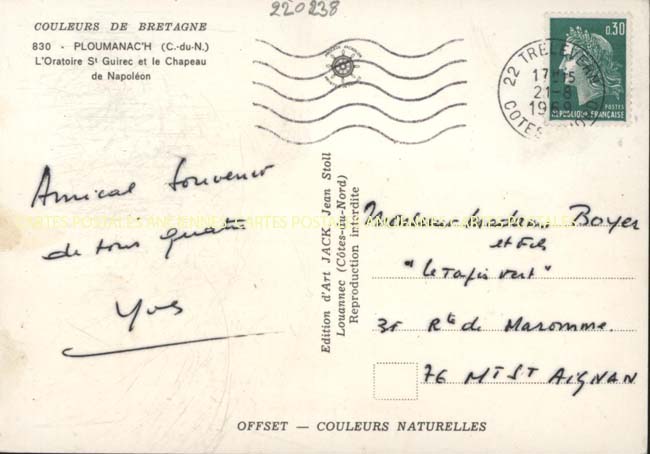 220238
COULEURS DE BRETAGNE
830 - PLOUMANAC'H (C.-du-N.)
L'Oratoire St Guirec et le Chapeau
de Napoléon
0,30
POSTES
REPUBLIQUE FRANÇAISE
22 TRELEVERN
17H15
21-8
1969
COTES DU NORD
Amical souvenir
de tous quatre
Yves
CARTES POSTALES ANCIENNES CARTES POSTALES ANCIENNES
Edition d'Art JACK - Jean Stoll
Louannec (Côtes-du-Nord)
Reproduction interdite
Boyer
et Fils
"Le Tapis Vert"
31 Rte de Maromme
76 MT ST AIGNAN
OFFSET — COULEURS NATURELLES